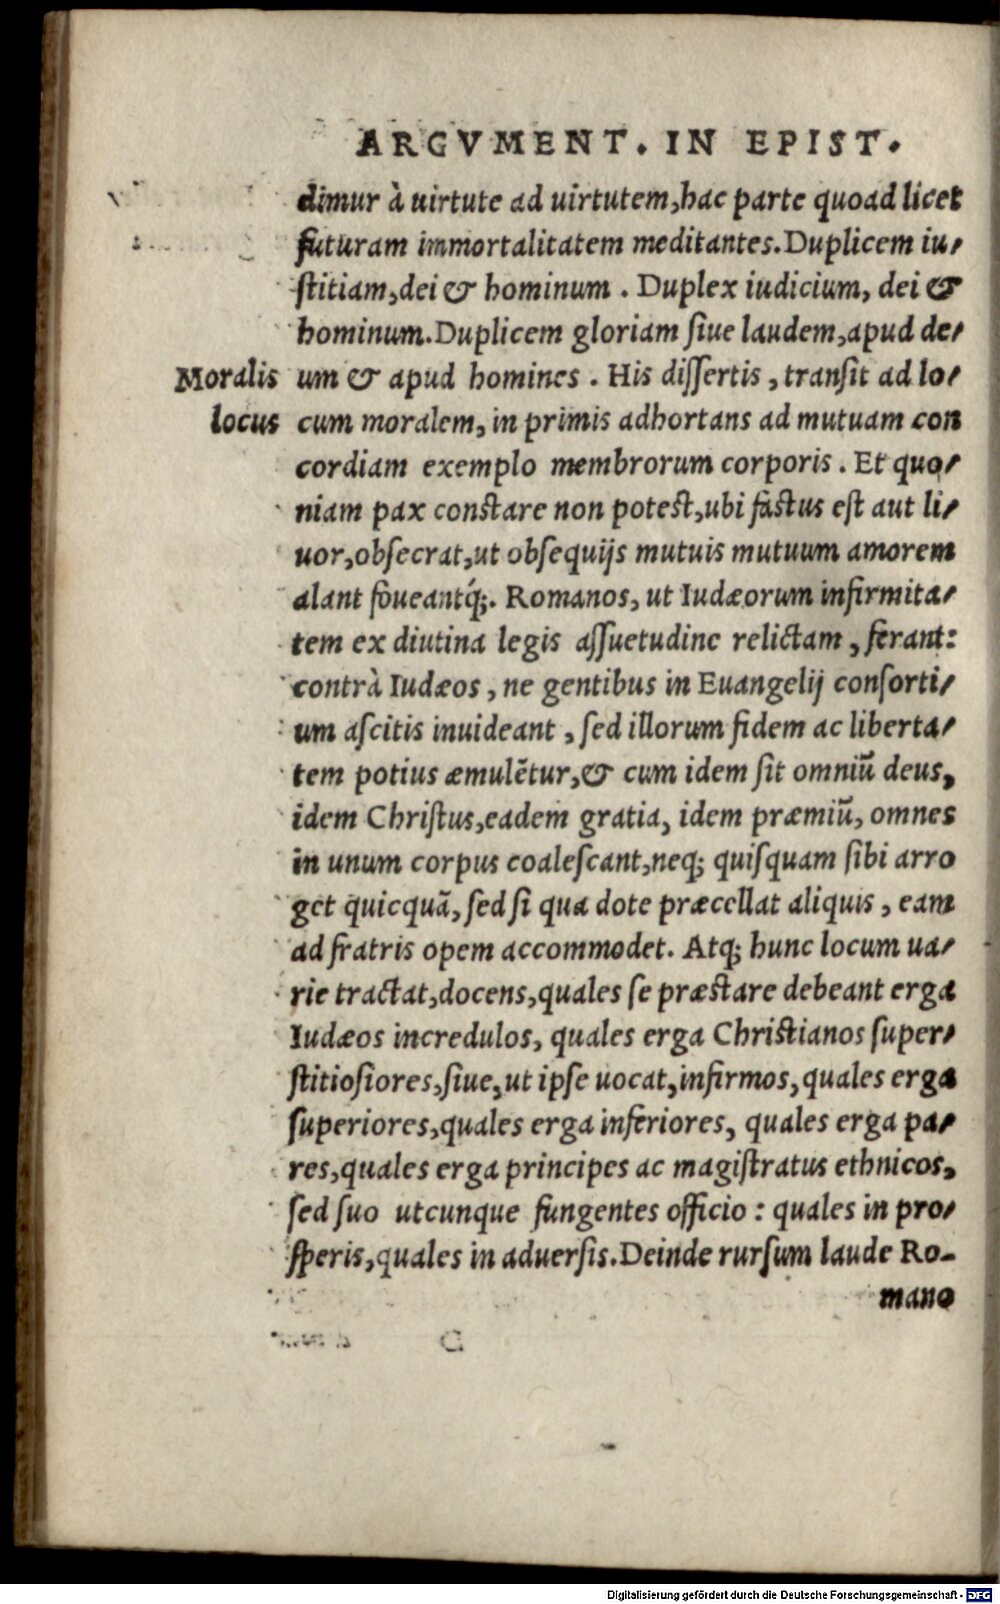 ARGVMENT. IN EPIST.
dimur à uirtute ad uirtutem, hac parte quoad licet
futuram immortalitatem meditantes. Duplicem iu-
stitiam, dei & hominum. Duplex iudicium, dei &
hominum. Duplicem gloriam siue laudem, apud de-
Moralis um & apud homines. His dissertis, transit ad lo-
locus cum moralem, in primis adhortans ad mutuam con
cordiam exemplo membrorum corporis. Et quo-
niam pax constare non potest, ubi fastus est aut li-
uor, obsecrat, ut obsequijs mutuis mutuum amorem
alant foueantq́;. Romanos, ut Iudæorum infirmita-
tem ex diutina legis assuetudine relictam, ferant:
contrà Iudæos, ne gentibus in Euangelij consorti-
um ascitis inuideant, sed illorum fidem ac liberta-
tem potius æmulẽtur, & cum idem sit omniũ deus,
idem Christus, eadem gratia, idem præmiũ, omnes
in unum corpus coalescant, neq; quisquam sibi arro
get quicquã, sed si qua dote præcellat aliquis, eam
ad fratris opem accommodet. Atq; hunc locum ua-
rie tractat, docens, quales se præstare debeant erga
Iudæos incredulos, quales erga Christianos super-
stitiosiores, siue, ut ipse uocat, infirmos, quales erga
superiores, quales erga inferiores, quales erga pa-
res, quales erga principes ac magistratus ethnicos,
sed suo utcunque fungentes officio: quales in pro-
speris, quales in aduersis. Deinde rursum laude Ro-
mano
Digitalisierung gefördert durch die Deutsche Forschungsgemeinschaft - DFG